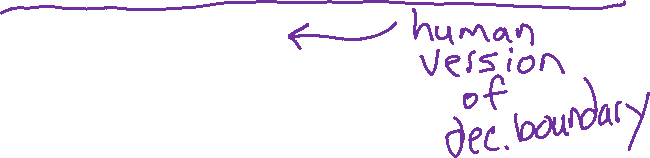 human
version
of
dec. boundary